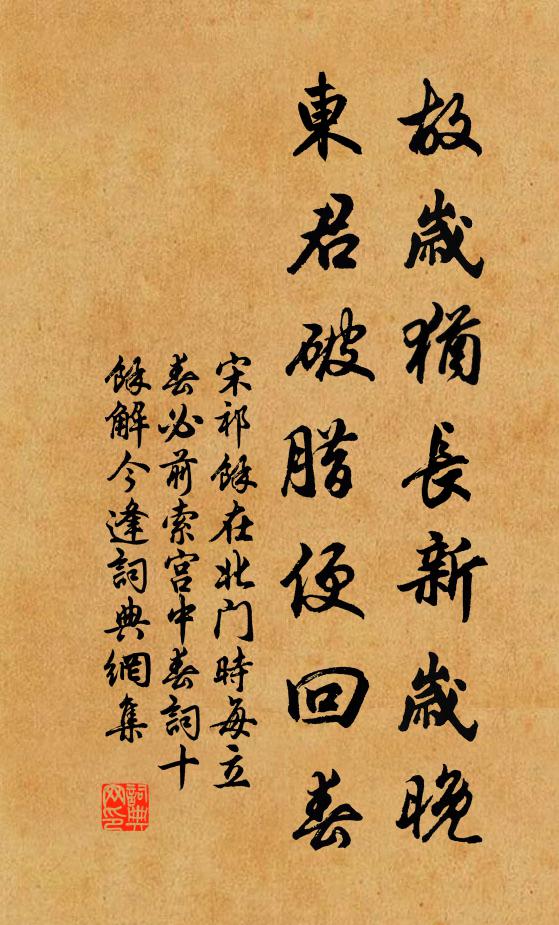 故歲猶長新歲晚
東君破腊便回春
宋祁馀在北门時每立
春必前索宫中春詞十
馀解今逢詞典網集
詞典网印